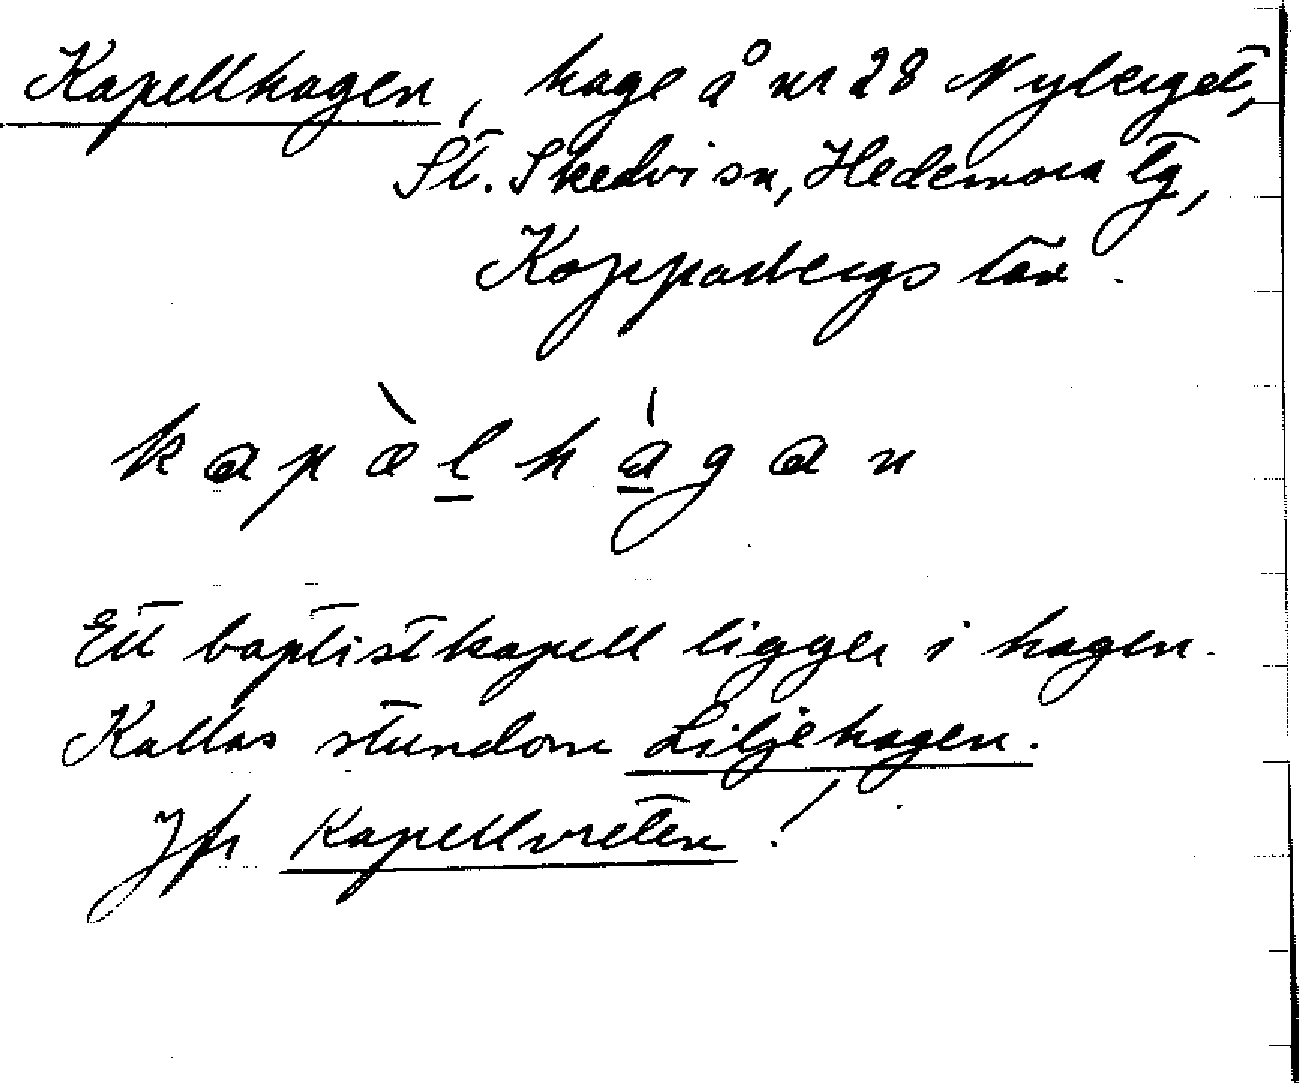 Kapellhagen, hage å nr 28 Nyberget,
St. Skedvi sn, Hedemora tg,
Kopparbergs län.
kapàlhágan
Ett baptistkapell ligger i hagen.
Kallas stundom Liljehagen.
Jfr Kapellvreten!